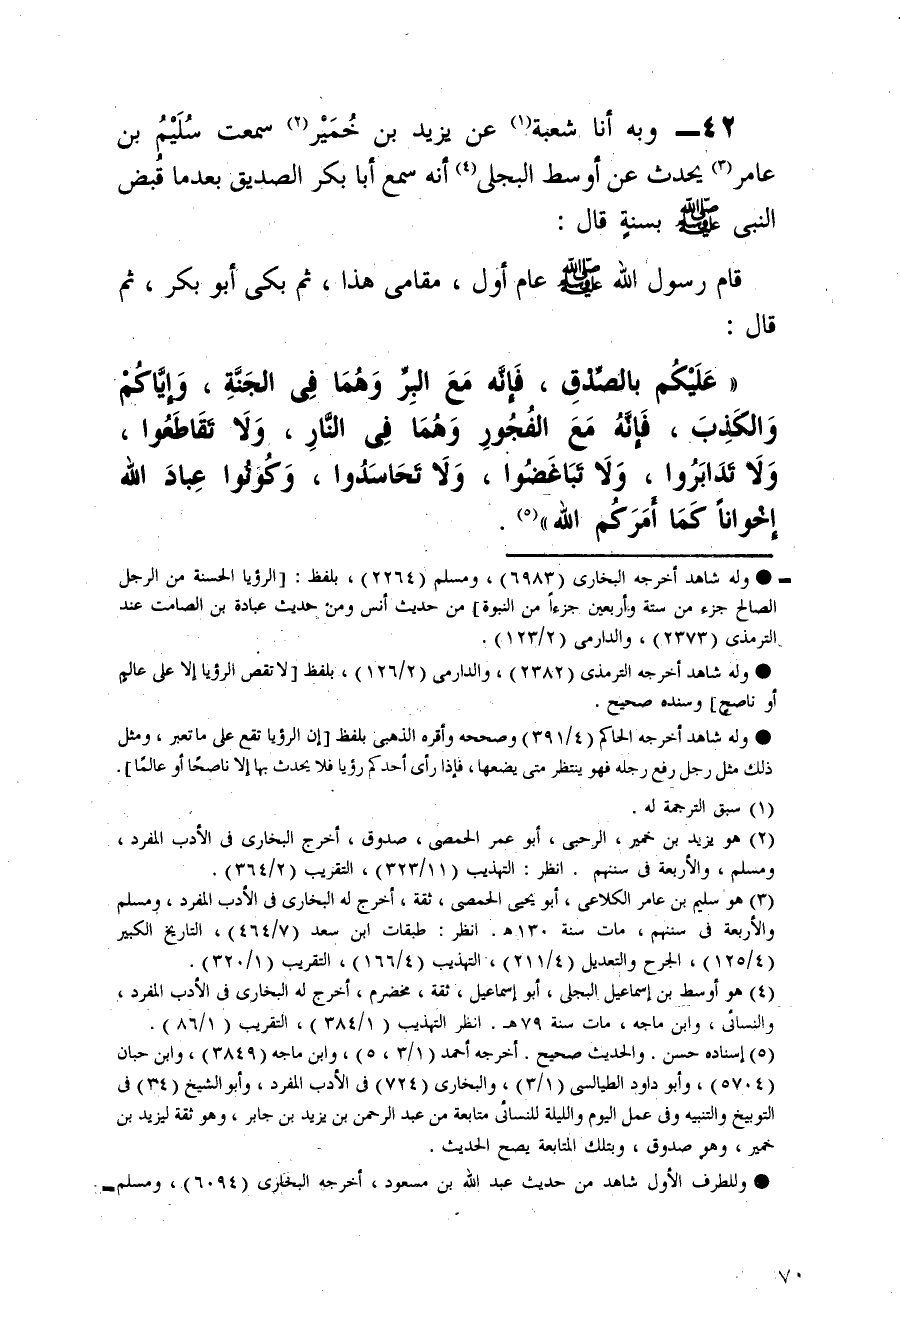 ٤٢ــ وبه أنا شعبة(١) عن يزيد بن خُمَيْر(٢) سمعت سُلَيْمُ بن
عامر(٣) يحدث عن أوسط البجلى(٤) أنه سمع أبا بكر الصديق بعدما قُبض
النبى ﷺ بسنةٍ قال :
قام رسول الله ﷺ عام أول ، مقامى هذا ، ثم بكى أبو بكر ، ثم
قال :
« عَلَيْكُم بالصِّدْقِ ، فَإنَّه مَعَ البِرِّ وَهُمَا فِى الجَنَّةِ ، وَإيَّاكُمْ
وَالكَذِبَ ، فَإنَّهُ مَعَ الفُجُورِ وَهُمَا فِى النَّارِ ، وَلَا تَقَاطَعُوا ،
وَلَا تَدَابَرُوا ، وَلَا تَبَاغَضُوا ، وَلَا تَحَاسَدُوا ، وَكُونُوا عِبادَ الله
إخْواناً كَمَا أَمَرَكُم الله »(٥) .
ــ ● وله شاهد أخرجه البخارى (٦٩٨٣) ، ومسلم (٢٢٦٤) ، بلفظ : [الرؤيا الحسنة من الرجل
الصالح جزء من ستة وأربعين جزءاً من النبوة] من حديث أنس ومن حديث عبادة بن الصامت عند
الترمذى (٢٣٧٣) ، والدارمى (١٢٣/٢) .
● وله شاهد أخرجه الترمذى (٢٣٨٢) ، والدارمى (١٢٦/٢) ، بلفظ [لا تقص الرؤيا إلا على عالمٍ
أو ناصحٍ] وسنده صحيح .
● وله شاهد أخرجه الحاكم (٣٩١/٤) وصححه وأقره الذهبى بلفظ [إن الرؤيا تقع على ما تعبر ، ومثل
ذلك مثل رجل رفع رجله فهو ينتظر متى يضعها ، فإذا رأى أحدكم رؤيا فلا يحدث بها إلا ناصحًا أو عالمًا] .
(١) سبق الترجمة له .
(٢) هو يزيد بن خمير ، الرحبى ، أبو عمر الحمصى ، صدوق ، أخرج البخارى فى الأدب المفرد ،
ومسلم ، والأربعة فى سننهم . انظر : التهذيب (٣٢٣/١١) ، التقريب (٣٦٤/٢) .
(٣) هو سليم بن عامر الكلاعى ، أبو يحيى الحمصى ، ثقة ، أخرج له البخارى فى الأدب المفرد ، ومسلم
والأربعة فى سننهم ، مات سنة ١٣٠هـ . انظر : طبقات ابن سعد (٤٦٤/٧) ، التاريخ الكبير
(١٢٥/٤) ، الجرح والتعديل (٢١١/٤) ، التهذيب (١٦٦/٤) ، التقريب (٣٢٠/١) .
(٤) هو أوسط بن إسماعيل البجلى ، أبو إسماعيل ، ثقة ، مخضرم ، أخرج له البخارى فى الأدب المفرد ،
والنسائى ، وابن ماجه ، مات سنة ٧٩هـ . انظر التهذيب ( ٣٨٤/١ ) ، التقريب ( ٨٦/١ ) .
(٥) إسناده حسن . والحديث صحيح . أخرجه أحمد (٣/١ ، ٥) ، وابن ماجه (٣٨٤٩) ، وابن حبان
(٥٧٠٤) ، وأبو داود الطيالسى (٣/١) ، والبخارى (٧٢٤) فى الأدب المفرد ، وأبو الشيخ (٣٤) فى
التوبيخ والتنبيه وفى عمل اليوم والليلة للنسائى متابعة من عبد الرحمن بن يزيد بن جابر ، وهو ثقة ليزيد بن
خمير ، وهو صدوق ، وبتلك المتابعة يصح الحديث .
● وللطرف الأول شاهد من حديث عبد الله بن مسعود ، أخرجه البخارى (٦٠٩٤) ، ومسلم ــ
٧٠